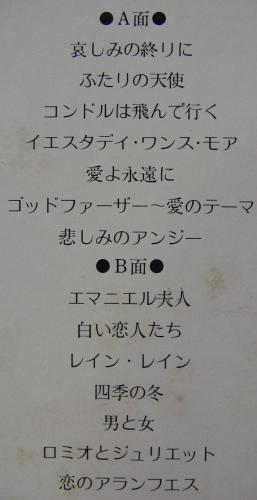 ●A面●
哀しみの終りに
ふたりの天使
コンドルは飛んで行く
イエスタデイ・ワンス・モア
愛よ永遠に
ゴッドファーザー〜愛のテーマ
悲しみのアンジー
●B面●
エマニエル夫人
白い恋人たち
レイン・レイン
四季の冬
男と女
ロミオとジュリエット
恋のアランフエス